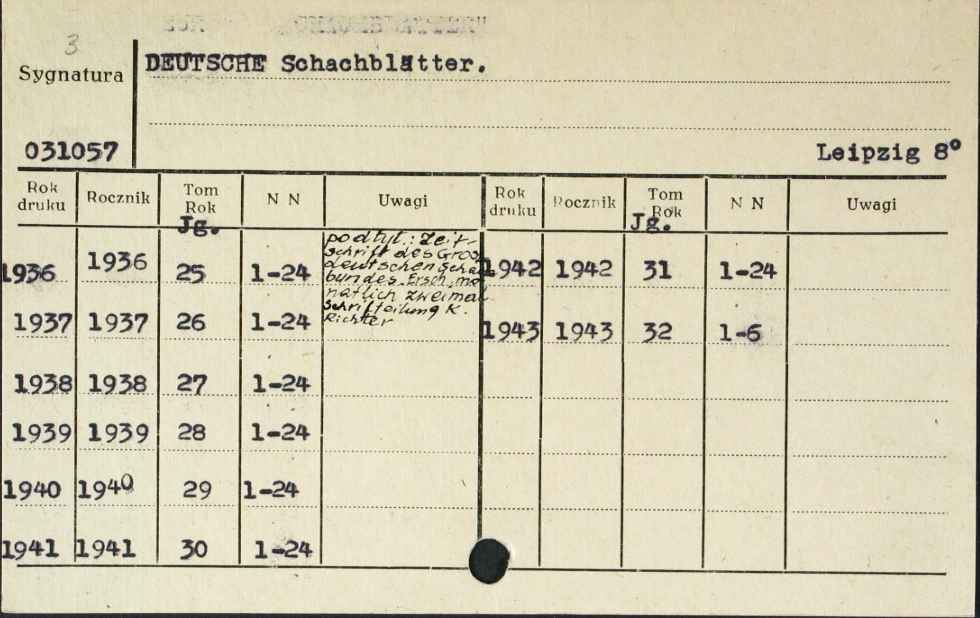 3
Sygnatura
DEUTSCHE Schachblätter.
031057
Leipzig 8°
Rok druku Rocznik Tom Rok Jg. N N Uwagi Rok druku Rocznik Tom Rok Jg. N N Uwagi
podtyt.: Zeit-
schrift des Gross
deutschen Scha
bundes. Ersch. mo
natlich zweimal
Schriftleitung K.
Richter
1936 1936 25 1-24 1942 1942 31 1-24
1937 1937 26 1-24 1943 1943 32 1-6
1938 1938 27 1-24
1939 1939 28 1-24
1940 1940 29 1-24
1941 1941 30 1-24